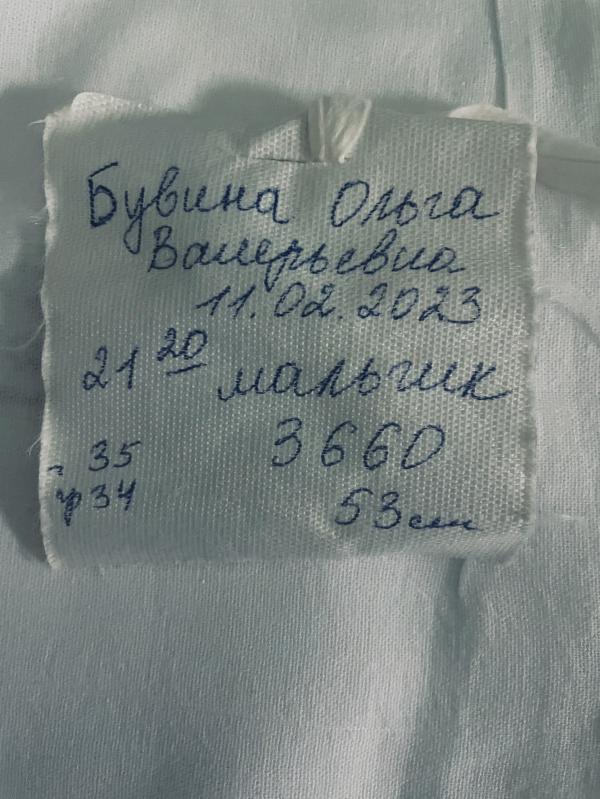 Бувина Ольга
Валерьевна
11.02.2023
21 20 мальчик
г 35 3660
гр 34 53 см